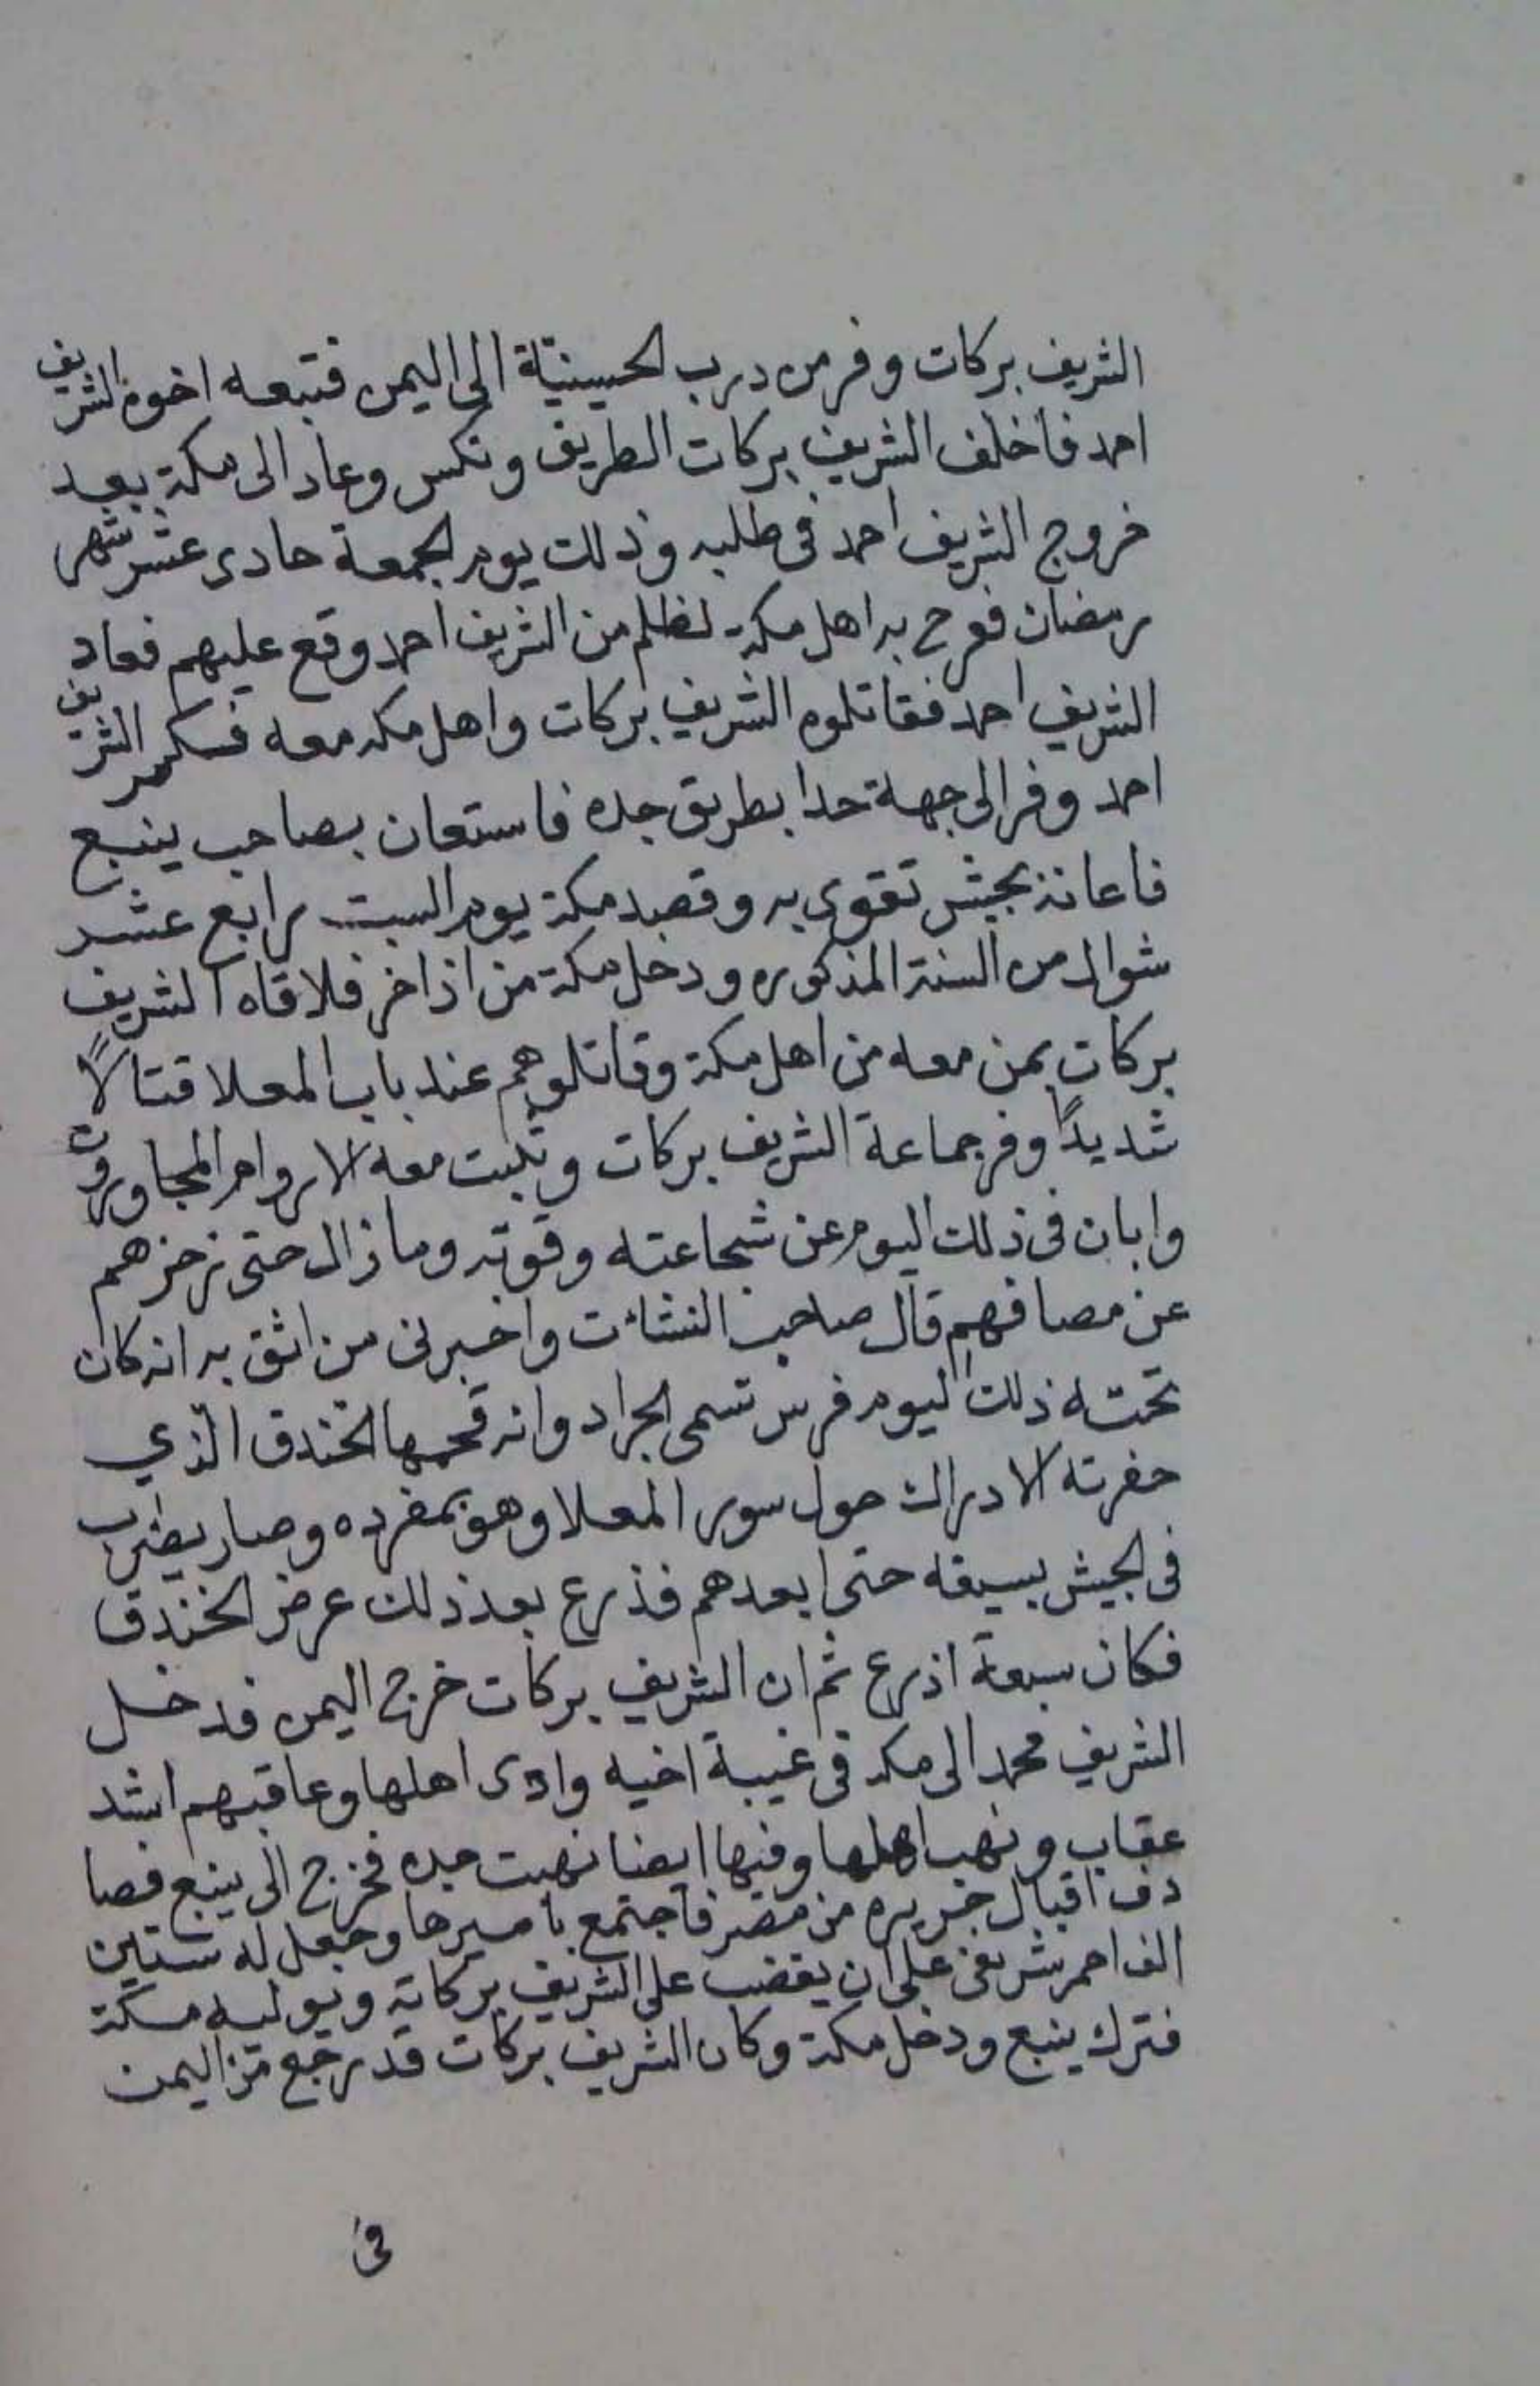 الشريف بركات وفر من درب الحسينية الى اليمن فتبعه اخوه الشريف
احمد فاخلف الشريف بركات الطريق ونكس وعاد الى مكة بعد
خروج الشريف احمد فى طلبه وذلك يوم الجمعة حادى عشر شهر
رمضان ففرح به اهل مكة لظلم من الشريف احمد وقع عليهم فعاد
الشريف احمد فقاتلوه الشريف بركات واهل مكه معه فكسر الشريف
احمد وفر الى جهة حدا بطريق جده فاستعان بصاحب ينبع
فاعانه بجيش تقوى به وقصد مكة يوم السبت رابع عشر
شوال من السنة المذكوره ودخل مكة من اذاخر فلاقاه الشريف
بركات بمن معه من اهل مكة وقاتلوهم عند باب المعلا قتالاً
شديداً وفر جماعة الشريف بركات وثبت معه الاروام المجاورون
وابان فى ذلك اليوم عن شجاعته وقوته وما زال حتى زحزهم
عن مصافهم قال صاحب النشات واخبرنى من اثق به انه كان
تحته ذلك اليوم فرس تسمى الجراد وانه قحمها الخندق الذي
حفرته الادراك حول سور المعلا وهو بمفرده وصار يضرب
فى الجيش بسيفه حتى ابعدهم فذرع بعد ذلك عرض الخندق
فكان سبعة اذرع ثم ان الشريف بركات خرج اليمن فدخل
الشريف محمد الى مكه فى غيبة اخيه واذى اهلها وعاقبهم اشد
عقاب ونهب اهلها وفيها ايضا نهبت جده فخرج الى ينبع فصا
دف اقبال جريره من مصر فاجتمع باميرها وجعل له ستين
الف احمر شريفى على ان يقضب على الشريف بركات ويوليه مكة
فترك ينبع ودخل مكة وكان الشريف بركات قد رجع من اليمن
فى